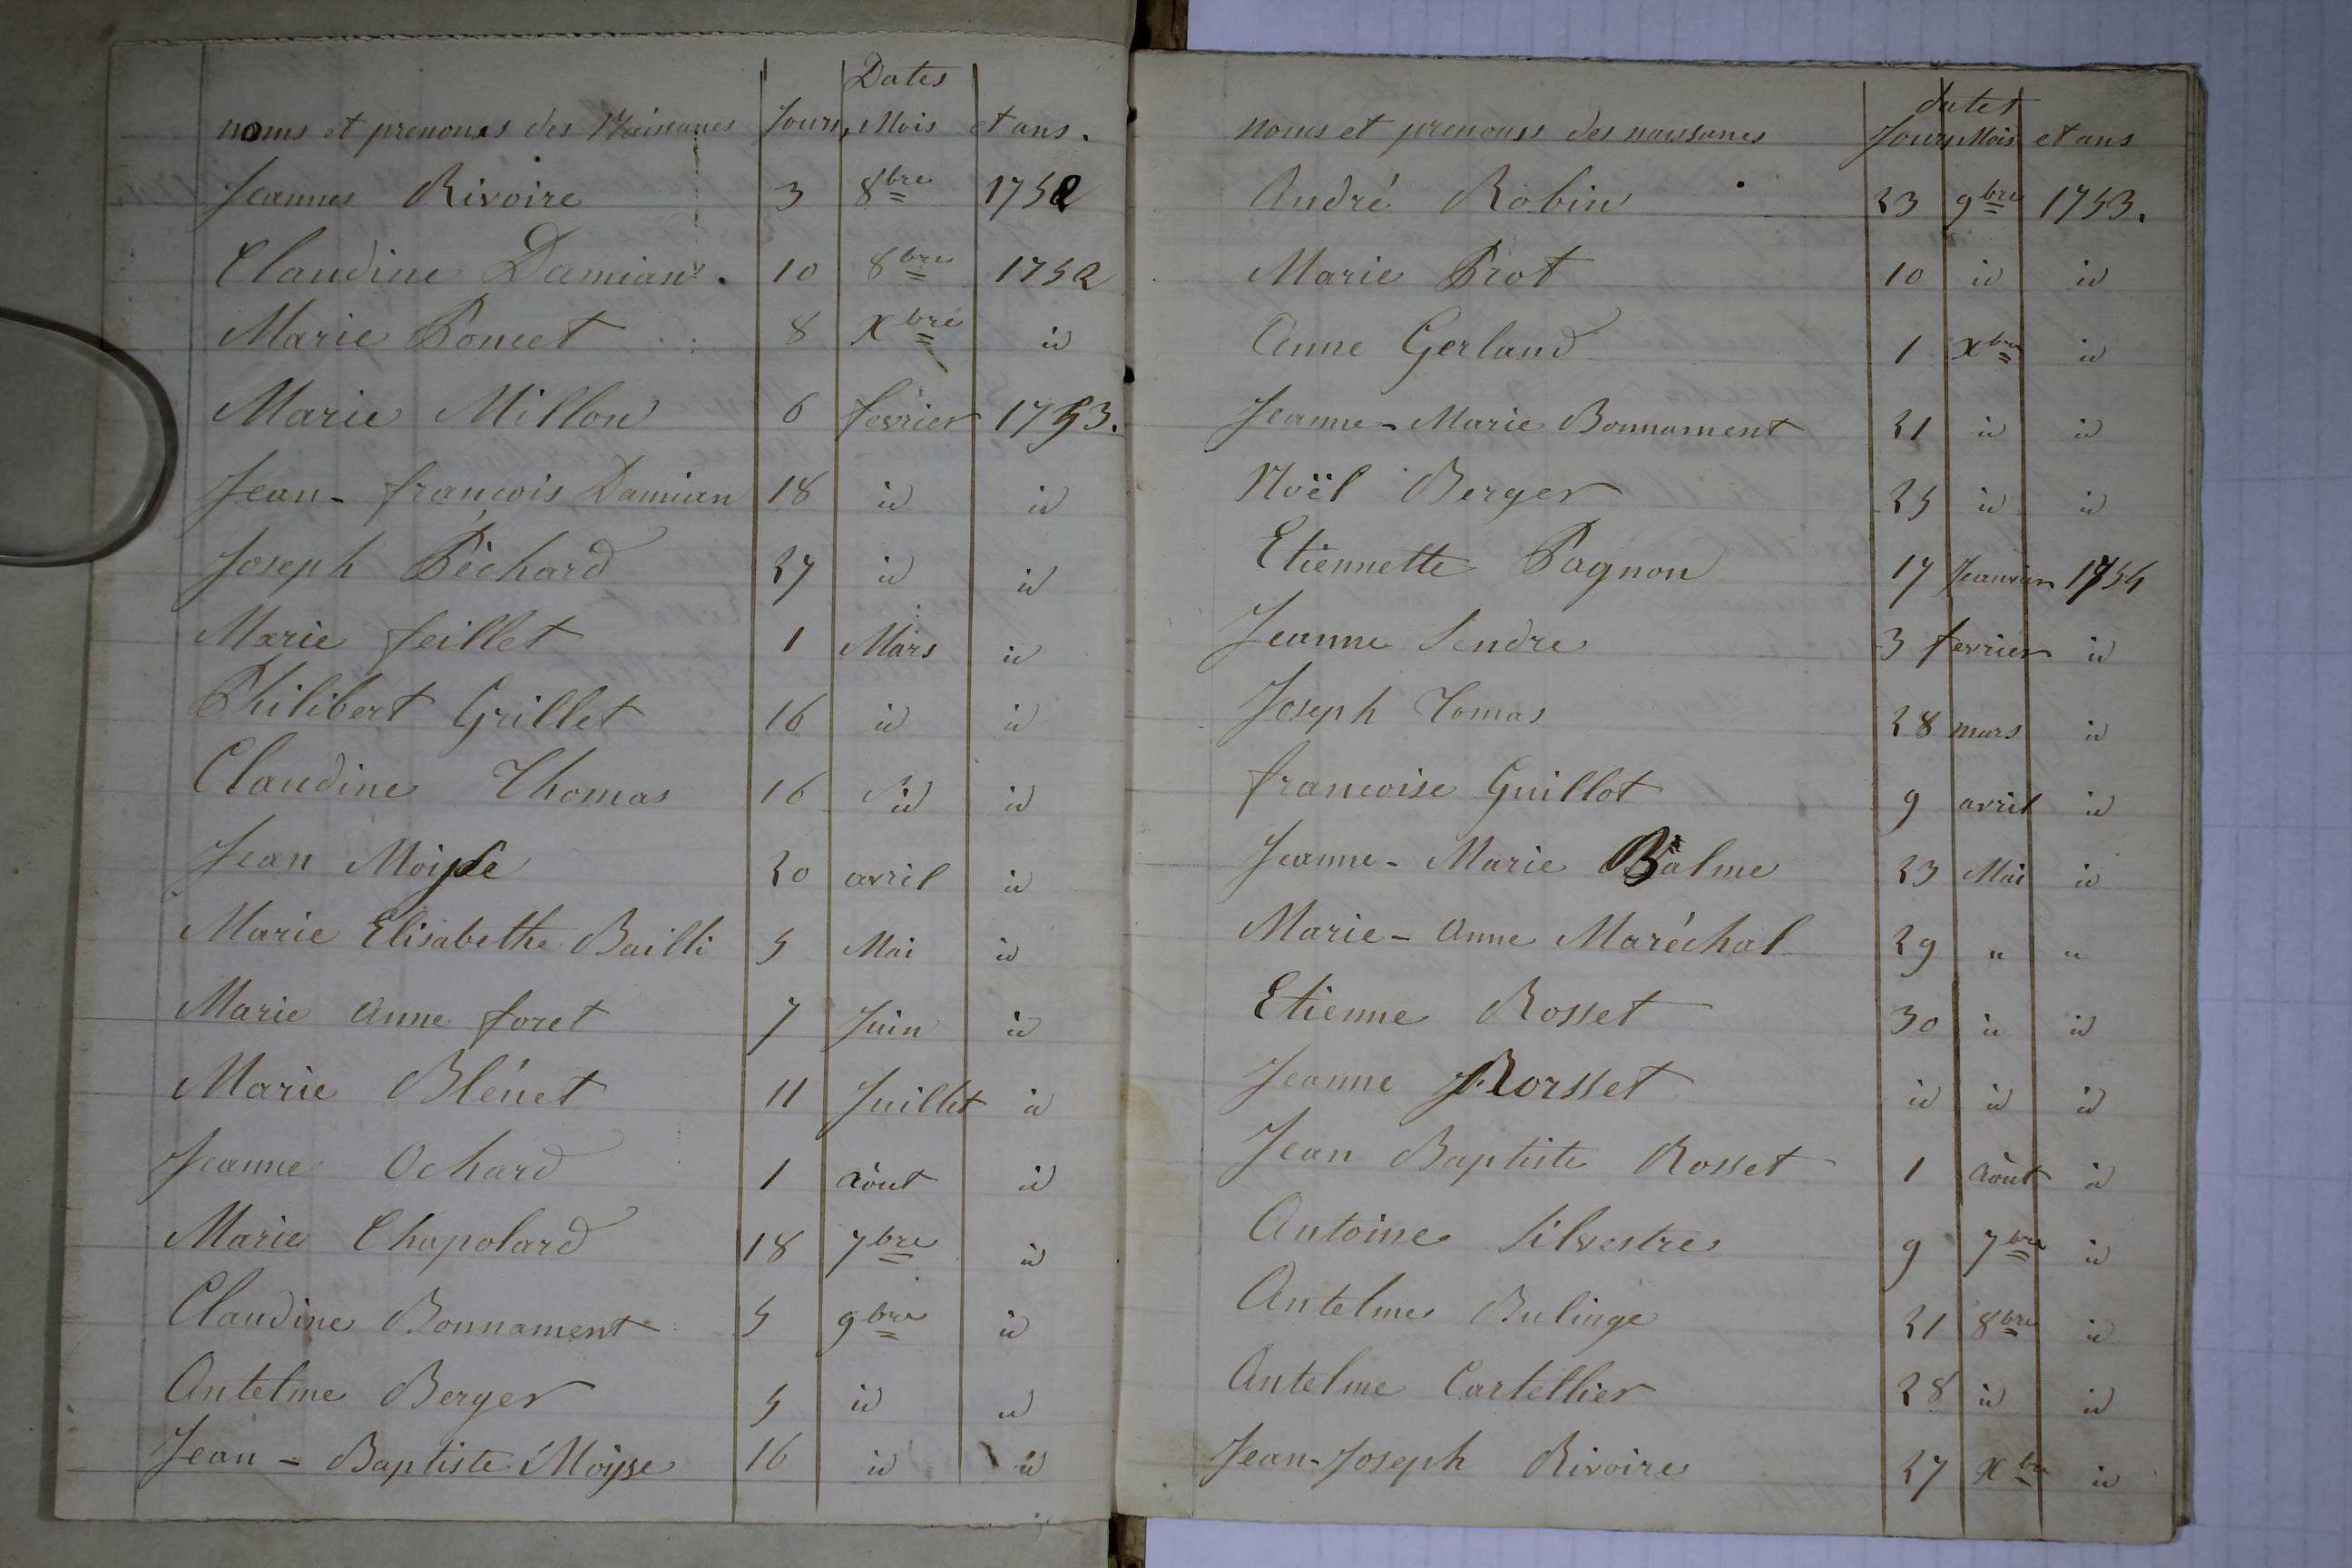 Dates
noms et prenoms des Naissances Jours, Mois et ans.
Jeannes Rivoire 3 8bre 1752
Claudine Damian. 10 8bre 1752
Marie Poncet 8 Xbre id
Marie Millon 6 fevrier 1753.
Jean-françois Damian 18 id id
Joseph Péchard 27 id id
Marie feillet 1 Mars id
Philibert Grillet 16 id id
Claudine Thomas 16 id id
Jean Moyse 20 avril id
Marie Elisabethe Bailli 5 Mai id
Marie anne foret 7 Juin id
Marie Blénet 11 Juillet id
Jeanne Ochard 1 aout id
Marie Chapolard 18 7bre id
Claudine Bonnament 5 9bre id
Antelme Berger 5 id id
Jean-Baptiste Moyse 16 id id
dates
noms et prenoms des naissances Jours Mois et ans
André Robin 23 9bre 1753.
Marie Prot 10 id id
Anne Gerland 1 Xbre id
Jeanne-Marie Bonnament 21 id id
Noël Berger 25 id id
Etiennette Pagnon 17 Jeanvier 1754
Jeanne Sendre 3 fevrier id
Joseph Tomas 28 mars id
francoise Guillot 9 avril id
Jeanne-Marie Balme 23 Mai id
Marie-anne Maréchal 29 " "
Etienne Rosset 30 id id
Jeanne Rorsset id id id
Jean Baptiste Rosset 1 Aout id
Antoine Silvestre 9 7bre id
Antelme Bulinge 21 8bre id
Antelme Cartellier 28 id id
Jean-Joseph Rivoire 27 Xbre id